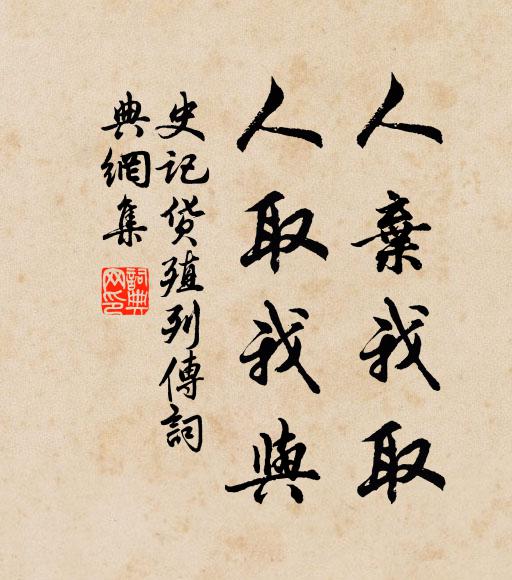 人棄我取
人取我與
史记货殖列傳詞
典網集
詞典
网印